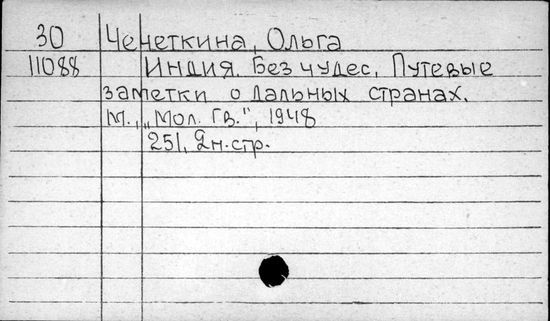 30 Чечеткина, Ольга
11088 Индия. Без чудес. Путевые
заметки о дальных странах.
М., „Мол. Гв.", 1948
251, 2н.стр.